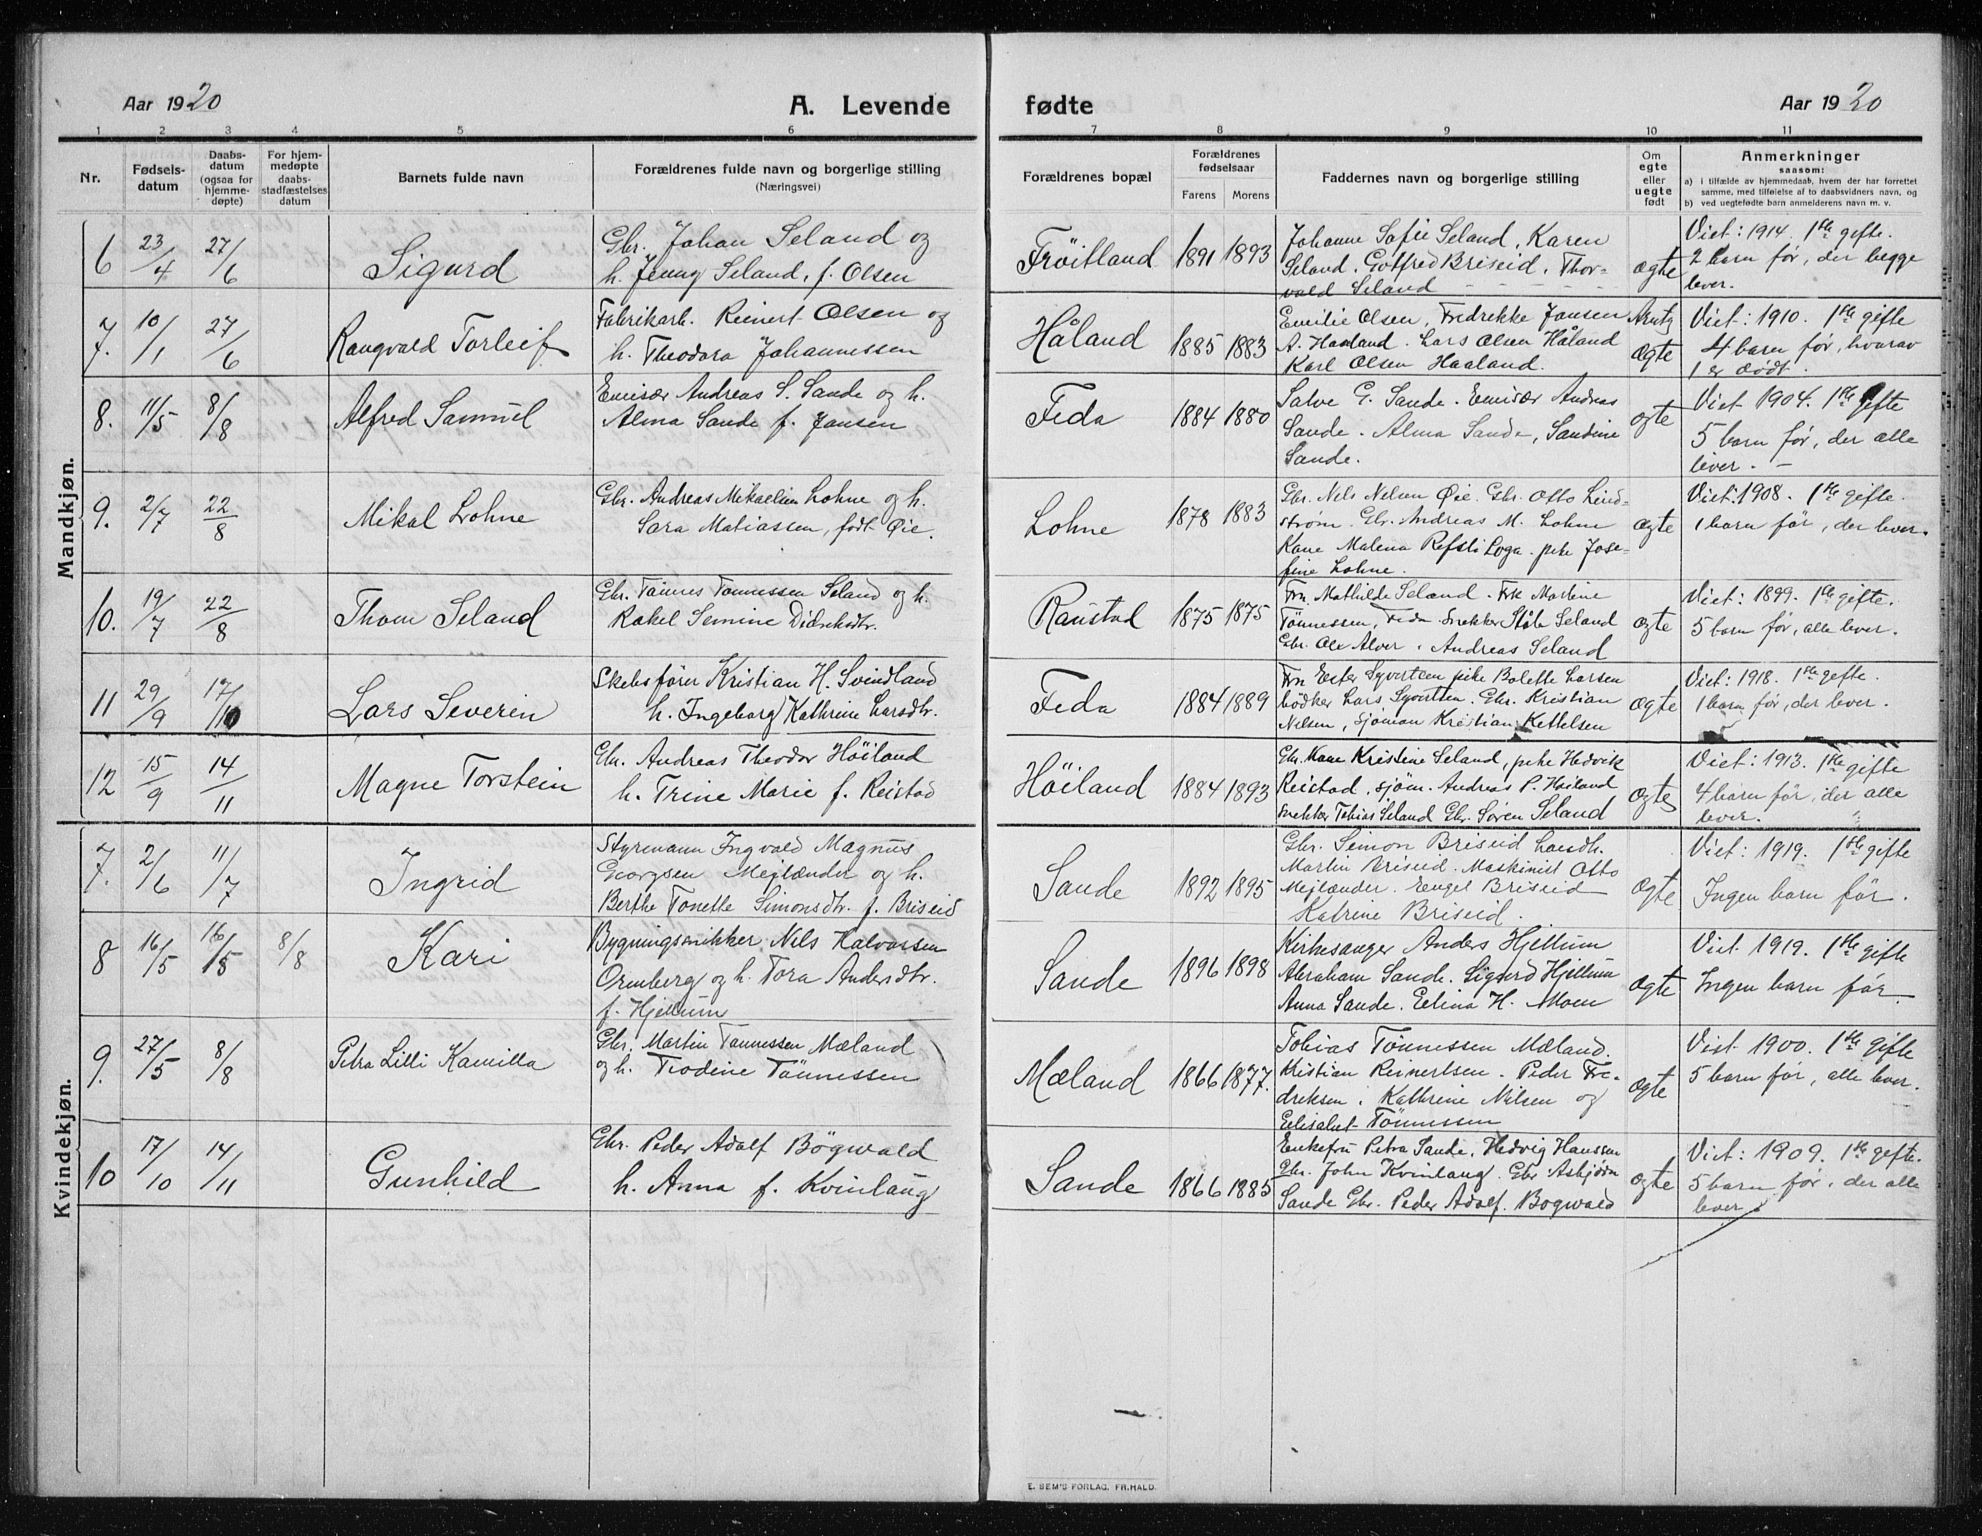 Aar 1920
A. Levende
fødte
Aar 1920
1 2 3 4 5 6 7 8 9 10 11
Nr.
Fødsels-
datum
Daabs-
datum
(ogsaa for
hjemme-
døpte)
For hjem-
medøpte
daabs-
stadfæstelses
datum
Barnets fulde navn
Forældrenes fulde navn og borgerlige stilling
(Næringsvei)
Forældrenes bopæl
Forældrenes
fødselsaar
Farens Morens
Faddernes navn og borgerlige stilling
Om
egte
eller
uegte
født
Anmerkninger
saasom:
a) i tilfælde av hjemmedaab, hvem der har forrettet
samme, med tilføielse af to daabsvidners navn, og
b) ved uegtefødte barn anmelderens navn m. v.
Mandkjøn.
6 23/4 27/6 Sigurd
Gbr. Johan Seland og
h. Jenny Seland, f. Olsen
Frøitland 1891 1893
Johanne Sofie Seland, Karen
Seland. Gotfred Briseid. Thor-
vald Seland
ægte
Viet: 1914. 1ste gifte.
2 barn før, der begge
lever.
7. 10/1 27/6 Rangvald Torleif
Fabrikarb. Reinert Olsen og
h. Theodora Johannessen
Håland 1885 1883
Emilie Olsen, Fredrekke Jansen
A. Haaland. Lars Olsen Håland
Karl Olsen Haaland.
ægte
Viet: 1910. 1ste gifte
4 barn før, hvorav
1 er dødt.
8. 11/5 8/8 Alfred Samuel
Emisær Andreas S. Sande og h.
Alma Sande f. Jansen
Feda 1884 1880
Salve G. Sande. Emisær Andreas
Sande. Alma Sande, Sandine
Sande.
ægte
Viet 1904. 1ste gifte
5 barn før, der alle
lever. -
9. 2/7 22/8 Mikal Lohne
Gbr. Andreas Mikaelsen Lohne og h.
Sara Matiassen, født Øie.
Lohne 1878 1883
Gbr. Nels Nelsen Øie. Gbr. Otto Lind-
strøm. Gbr. Andreas M. Lohne
Kone Malena Refsti Loga. pike Jose-
fine Lohne.
ægte
Viet: 1908. 1ste gifte.
1 barn før, der lever.
10. 19/7 22/8 Thom Seland
Gbr. Tønnes Tønnessen Seland og h.
Rakel Semine Didriksdtr.
Raustad 1875 1875
Fru Mathilde Seland. Frk Martine
Tönnessen, Feda. Snekker Ståle Seland
Gbr. Ole Alver. Andreas Seland
ægte
Viet: 1899. 1ste gifte.
5 barn før, alle lever.
11 29/9 17/10 Lars Severin
Skibsfører Kristian H. Svindland
h. Ingeborg Kathrine Larsdtr.
Feda 1884 1889
Fru Ester Syvertsen pike Bolette Larsen
bödker Lars Syvertsen. Gbr. Kristian
Nelsen, sjöman Kristian Kettelsen
ægte
Viet: 1918. 1ste gifte.
1 barn før, der lever.
12 15/9 14/11 Magne Torstein
Gbr. Andreas Theodor Höiland
h. Trine Marie f. Reistad
Höiland 1884 1893
Gbr. Kone Kristine Seland, pike Hedvik
Reistad, sjöm. Andreas P. Höiland
snekker Tobias Seland Gbr. Søren Seland
ægte
Viet: 1913. 1ste gifte
4 barn før, der alle
lever.
Kvindekjøn.
7. 2/6 11/7 Ingrid
Styrmann Ingvald Magnus
Georgsen Mejlænder og h.
Berthe Tonette Simonsdtr. f. Briseid
Sande 1892 1895
Gbr. Simon Briseid
Martin Briseid. Maskinist Otto
Mejlænder. Engel Briseid
Katrine Briseid.
ægte
Viet: 1919. 1ste gifte
Ingen barn før.
8 16/5 16/5 8/8 Kari
Bygningssnikker Nils Halvorsen
Ormberg og h. Tora Andersdtr.
f. Hjellum
Sande 1896 1898
Kirkesanger Anders Hjellum
Abraham Sande. Sigurd Hjellum
Anna Sande. Eelina H. Moen
ægte
Viet 1919. 1ste gifte
Ingen barn før.
9. 27/5 8/8 Petra Lilli Kamilla
Gbr. Martin Tønnessen Mæland
og h. Tiodine Tönnessen
Mæland 1866 1877.
Tobias Tönnessen Mæland.
Kristian Reinertsen. Peder Fre-
driksen. Kathrine Nilsen og
Eelisabet Tönnessen
ægte
Viet 1900. 1ste gifte
5 barn før, alle lever.
10 17/10 14/11 Gunhild
Gbr. Peder Adolf Bögwald
h. Anna f. Kvinlaug
Sande 1866 1885
Enkefru Petra Sande, Hedvig Hanssen
Gbr. John Kvinlaug. Gbr Asbjørn
Sande Gbr. Peder Adolf. Bogwald
ægte
Viet: 1909. 1ste gifte.
5 barn før, der alle
lever.
E. SEM'S FORLAG, FR.HALD.